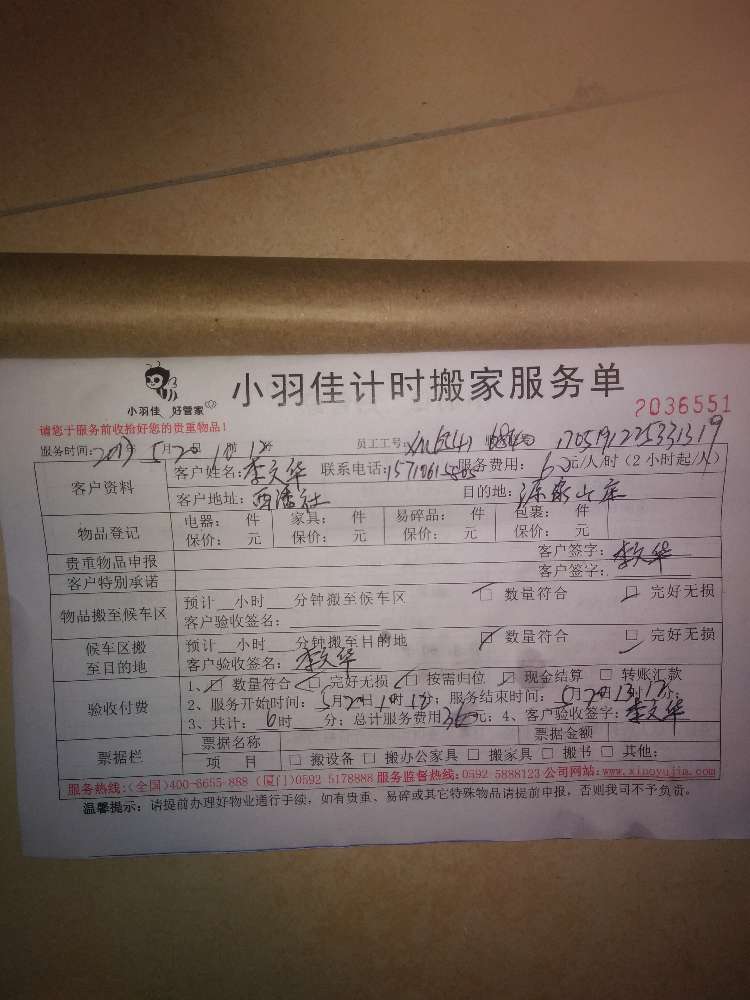 小羽佳 好管家
小羽佳计时搬家服务单
2036551
请您于服务前收拾好您的贵重物品！
服务时间：2017年5月20日 员工工号：
客户资料
客户姓名：李文华 联系电话： 服务费用：60元/人/时（2小时起/人）
客户地址：西潘社 目的地：
物品登记
电器： 件 家具： 件 易碎品： 件 包裹： 件
保价： 元 保价： 元 保价： 元 保价： 元
贵重物品申报 客户签字：李文华
客户特别承诺 客户签字：
物品搬至候车区
预计__小时___分钟搬至候车区 □ 数量符合 □ 完好无损
客户验收签名：
候车区搬至目的地
预计__小时___分钟搬至目的地 □ 数量符合 □ 完好无损
客户验收签名：李文华
验收付费
1、□ 数量符合 □ 完好无损 □ 按需归位 □ 现金结算 □ 转账汇款
2、服务开始时间：5月20日 时 分；服务结束时间：5月20日13时 分；
3、共计：6时 分；总计服务费用360元；4、客户验收签字：李文华
票据栏
票据名称 票据金额
项 目 □ 搬设备 □ 搬办公家具 □ 搬家具 □ 搬书 □ 其他：
服务热线：(全国)400-6655-888 (厦门)0592 5178888 服务监督热线：0592 5888123 公司网站：www.xiaoyujia.com
温馨提示：请提前办理好物业通行手续，如有贵重、易碎或其它特殊物品请提前申报，否则我司不予负责。